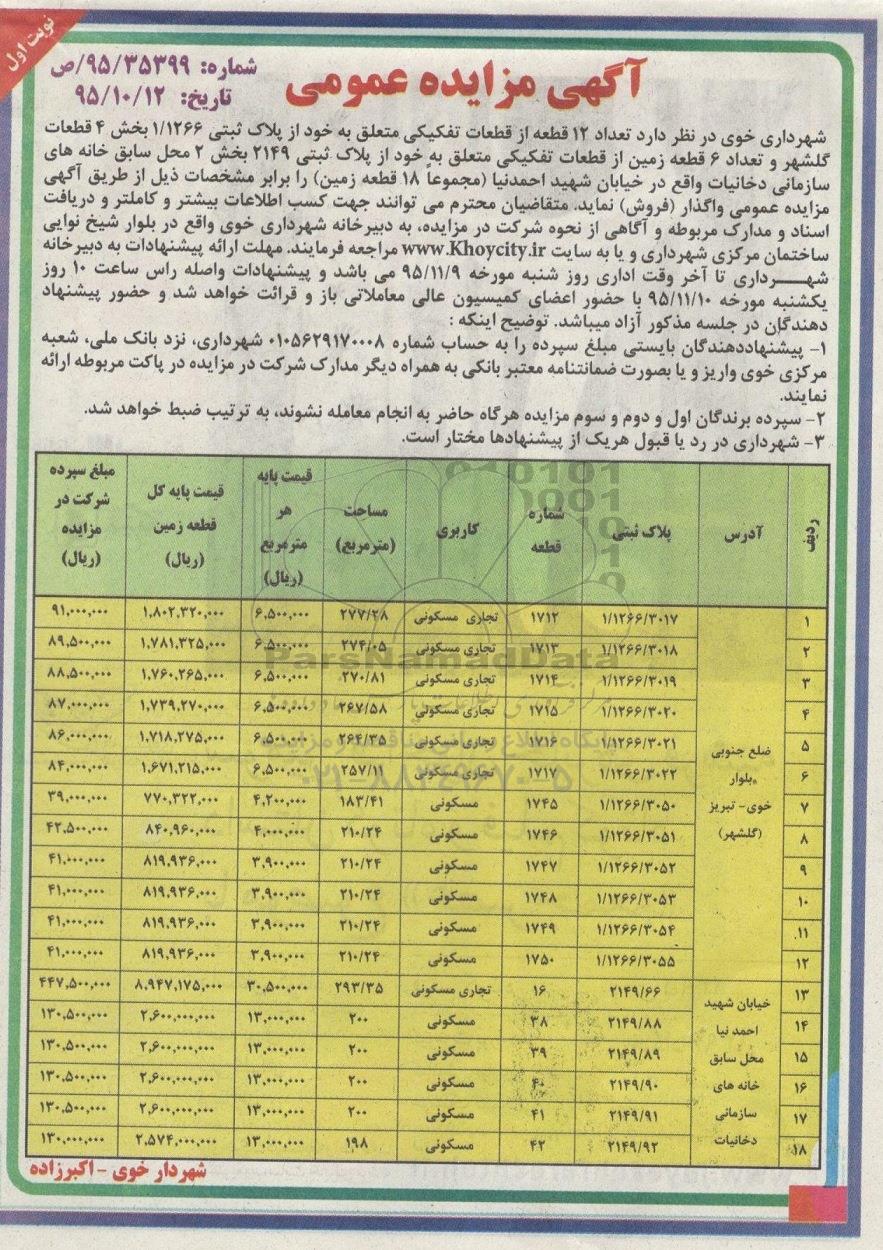 نوبت اول
آگهی مزایده عمومی
شماره: ۹۵/۳۵۳۹۹/ص
تاریخ: ۹۵/۱۰/۱۲
شهرداری خوی در نظر دارد تعداد ۱۲ قطعه از قطعات تفکیکی متعلق به خود از پلاک ثبتی ۱/۱۲۶۶ بخش ۴ قطعات
گلشهر و تعداد ۶ قطعه زمین از قطعات تفکیکی متعلق به خود از پلاک ثبتی ۲۱۴۹ بخش ۲ محل سابق خانه های
سازمانی دخانیات واقع در خیابان شهید احمدنیا (مجموعاً ۱۸ قطعه زمین) را برابر مشخصات ذیل از طریق آگهی
مزایده عمومی واگذار (فروش) نماید. متقاضیان محترم می توانند جهت کسب اطلاعات بیشتر و کاملتر و دریافت
اسناد و مدارک مربوطه و آگاهی از نحوه شرکت در مزایده، به دبیرخانه شهرداری خوی واقع در بلوار شیخ نوایی
ساختمان مرکزی شهرداری و یا به سایت www.Khoycity.ir مراجعه فرمایند. مهلت ارائه پیشنهادات به دبیرخانه
شهرداری تا آخر وقت اداری روز شنبه مورخه ۹۵/۱۱/۹ می باشد و پیشنهادات واصله راس ساعت ۱۰ روز
یکشنبه مورخه ۹۵/۱۱/۱۰ با حضور اعضای کمیسیون عالی معاملاتی باز و قرائت خواهد شد و حضور پیشنهاد
دهندگان در جلسه مذکور آزاد میباشد. توضیح اینکه :
۱- پیشنهاددهندگان بایستی مبلغ سپرده را به حساب شماره ۰۱۰۵۶۲۹۱۷۰۰۰۸ شهرداری، نزد بانک ملی، شعبه
مرکزی خوی واریز و یا بصورت ضمانتنامه معتبر بانکی به همراه دیگر مدارک شرکت در مزایده در پاکت مربوطه ارائه
نمایند.
۲- سپرده برندگان اول و دوم و سوم مزایده هرگاه حاضر به انجام معامله نشوند، به ترتیب ضبط خواهد شد.
۳- شهرداری در رد یا قبول هریک از پیشنهادها مختار است.
ردیف آدرس پلاک ثبتی شماره قطعه کاربری مساحت (مترمربع) قیمت پایه هر مترمربع (ریال) قیمت پایه کل قطعه زمین (ریال) مبلغ سپرده شرکت در مزایده (ریال)
ضلع جنوبی
بلوار
خوی- تبریز
(گلشهر)
۱ ۱/۱۲۶۶/۳۰۱۷ ۱۷۱۲ تجاری مسکونی ۲۷۷/۲۸ ۶,۵۰۰,۰۰۰ ۱,۸۰۲,۳۲۰,۰۰۰ ۹۱,۰۰۰,۰۰۰
۲ ۱/۱۲۶۶/۳۰۱۸ ۱۷۱۳ تجاری مسکونی ۲۷۴/۰۵ ۶,۵۰۰,۰۰۰ ۱,۷۸۱,۳۲۵,۰۰۰ ۸۹,۵۰۰,۰۰۰
۳ ۱/۱۲۶۶/۳۰۱۹ ۱۷۱۴ تجاری مسکونی ۲۷۰/۸۱ ۶,۵۰۰,۰۰۰ ۱,۷۶۰,۲۶۵,۰۰۰ ۸۸,۵۰۰,۰۰۰
۴ ۱/۱۲۶۶/۳۰۲۰ ۱۷۱۵ تجاری مسکونی ۲۶۷/۵۸ ۶,۵۰۰,۰۰۰ ۱,۷۳۹,۲۷۰,۰۰۰ ۸۷,۰۰۰,۰۰۰
۵ ۱/۱۲۶۶/۳۰۲۱ ۱۷۱۶ تجاری مسکونی ۲۶۴/۳۵ ۶,۵۰۰,۰۰۰ ۱,۷۱۸,۲۷۵,۰۰۰ ۸۶,۰۰۰,۰۰۰
۶ ۱/۱۲۶۶/۳۰۲۲ ۱۷۱۷ تجاری مسکونی ۲۵۷/۱۱ ۶,۵۰۰,۰۰۰ ۱,۶۷۱,۲۱۵,۰۰۰ ۸۴,۰۰۰,۰۰۰
۷ ۱/۱۲۶۶/۳۰۵۰ ۱۷۴۵ مسکونی ۱۸۳/۴۱ ۴,۲۰۰,۰۰۰ ۷۷۰,۳۲۲,۰۰۰ ۳۹,۰۰۰,۰۰۰
۸ ۱/۱۲۶۶/۳۰۵۱ ۱۷۴۶ مسکونی ۲۱۰/۲۴ ۴,۰۰۰,۰۰۰ ۸۴۰,۹۶۰,۰۰۰ ۴۲,۵۰۰,۰۰۰
۹ ۱/۱۲۶۶/۳۰۵۲ ۱۷۴۷ مسکونی ۲۱۰/۲۴ ۳,۹۰۰,۰۰۰ ۸۱۹,۹۳۶,۰۰۰ ۴۱,۰۰۰,۰۰۰
۱۰ ۱/۱۲۶۶/۳۰۵۳ ۱۷۴۸ مسکونی ۲۱۰/۲۴ ۳,۹۰۰,۰۰۰ ۸۱۹,۹۳۶,۰۰۰ ۴۱,۰۰۰,۰۰۰
۱۱ ۱/۱۲۶۶/۳۰۵۴ ۱۷۴۹ مسکونی ۲۱۰/۲۴ ۳,۹۰۰,۰۰۰ ۸۱۹,۹۳۶,۰۰۰ ۴۱,۰۰۰,۰۰۰
۱۲ ۱/۱۲۶۶/۳۰۵۵ ۱۷۵۰ مسکونی ۲۱۰/۲۴ ۳,۹۰۰,۰۰۰ ۸۱۹,۹۳۶,۰۰۰ ۴۱,۰۰۰,۰۰۰
خیابان شهید
احمد نیا
محل سابق
خانه های
سازمانی
دخانیات
۱۳ ۲۱۴۹/۶۶ ۱۶ تجاری مسکونی ۲۹۳/۳۵ ۳۰,۵۰۰,۰۰۰ ۸,۹۴۷,۱۷۵,۰۰۰ ۴۴۷,۵۰۰,۰۰۰
۱۴ ۲۱۴۹/۸۸ ۳۸ مسکونی ۲۰۰ ۱۳,۰۰۰,۰۰۰ ۲,۶۰۰,۰۰۰,۰۰۰ ۱۳۰,۵۰۰,۰۰۰
۱۵ ۲۱۴۹/۸۹ ۳۹ مسکونی ۲۰۰ ۱۳,۰۰۰,۰۰۰ ۲,۶۰۰,۰۰۰,۰۰۰ ۱۳۰,۵۰۰,۰۰۰
۱۶ ۲۱۴۹/۹۰ ۴۰ مسکونی ۲۰۰ ۱۳,۰۰۰,۰۰۰ ۲,۶۰۰,۰۰۰,۰۰۰ ۱۳۰,۵۰۰,۰۰۰
۱۷ ۲۱۴۹/۹۱ ۴۱ مسکونی ۲۰۰ ۱۳,۰۰۰,۰۰۰ ۲,۶۰۰,۰۰۰,۰۰۰ ۱۳۰,۵۰۰,۰۰۰
۱۸ ۲۱۴۹/۹۲ ۴۲ مسکونی ۱۹۸ ۱۳,۰۰۰,۰۰۰ ۲,۵۷۴,۰۰۰,۰۰۰ ۱۳۰,۰۰۰,۰۰۰
شهردار خوی - اکبرزاده
ParsNamadData
۰۲۱-۸۸۳۴۹۶۷۰-۵